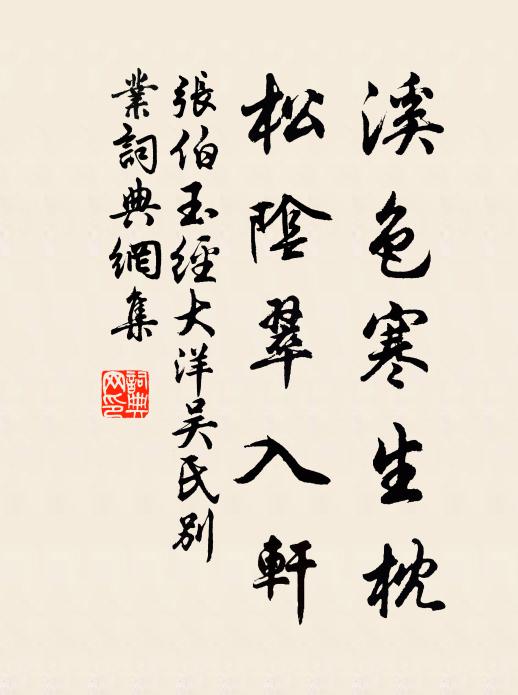 溪色寒生枕
松陰翠入軒
張伯玉經大洋吳氏別
業詞典網集
詞典
网印